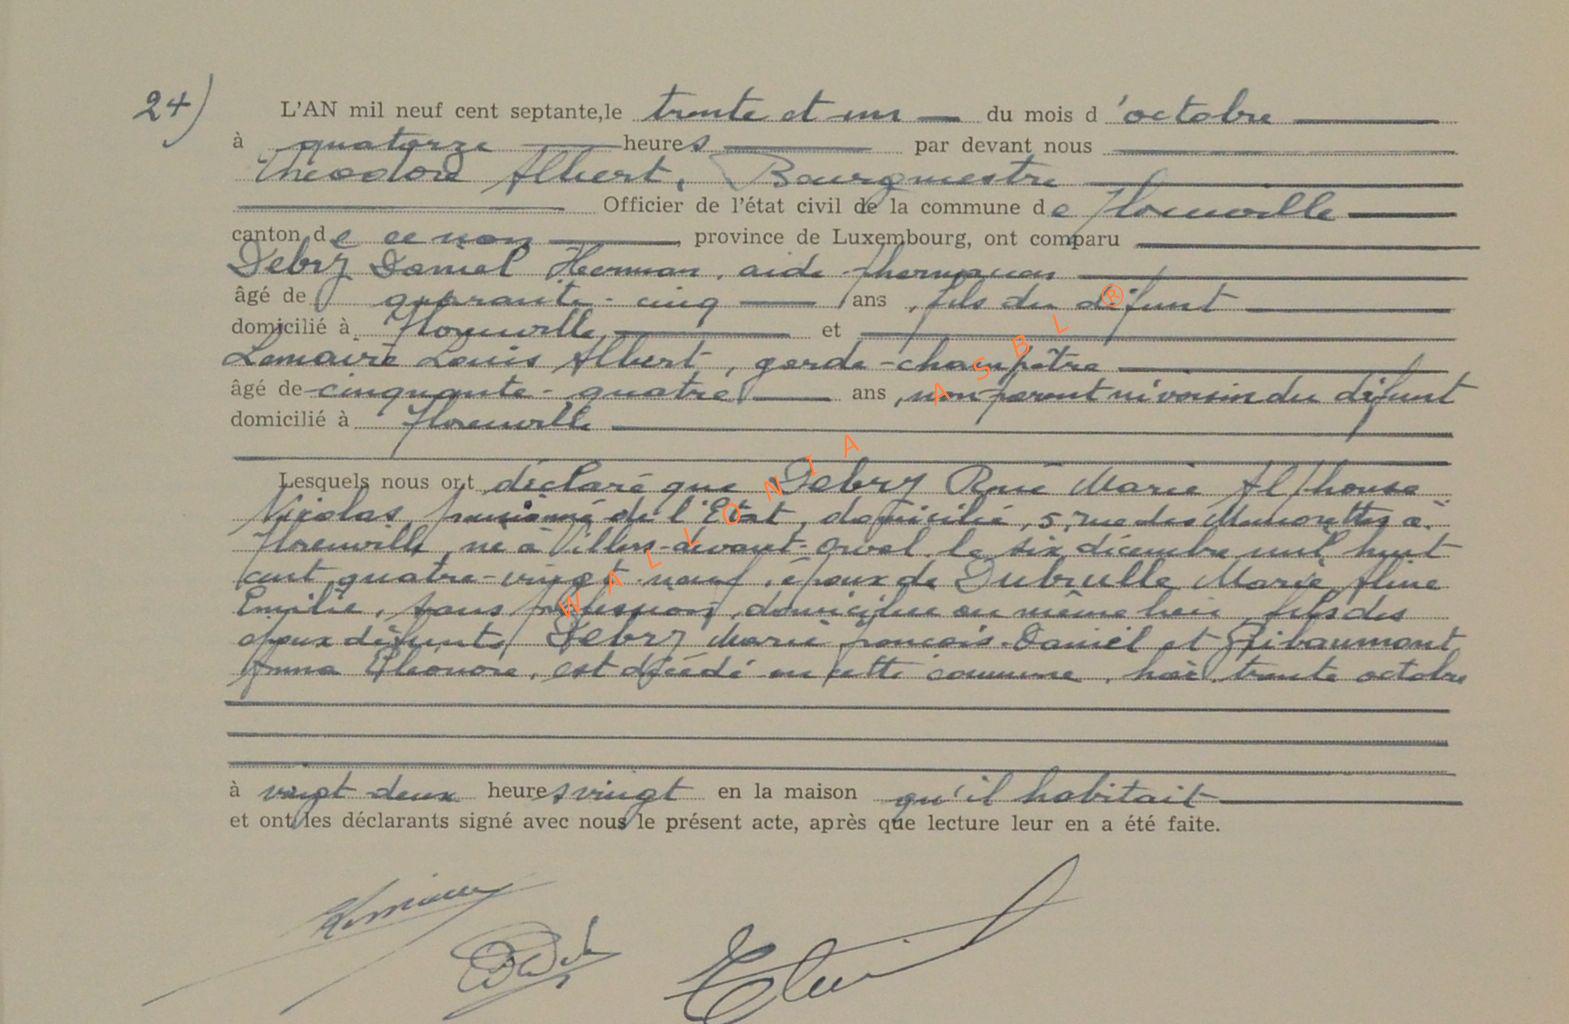 24)
L'AN mil neuf cent septante, le trente et un du mois d'octobre
à quatorze heures par devant nous
Théodore Albert, Bourgmestre
Officier de l'état civil de la commune de Florenville
canton de ce nom, province de Luxembourg, ont comparu
Debry Daniel Herman, aide pharmacien
âgé de quarante-cinq ans, fils du défunt
domicilié à Florenville, et
Lemaire Louis Albert, garde-champêtre
âgé de cinquante-quatre ans, non parent ni voisin du défunt
domicilié à Florenville
Lesquels nous ont déclaré que Debry René Marie Alphonse
Nicolas, pensionné de l'Etat, domicilié, 5, rue des à
Florenville, né à Villers-devant-Orval, le six décembre mil huit
cent quatre-vingt neuf, époux de Dubrulle Marie Aline
Emilie, sans profession, domiciliée au même lieu, fils des
époux défunts Debry Marie François-Daniel et Ribaumont
Anna Eléonore, est décédé en cette commune, hier trente octobre
à vingt deux heures vingt en la maison qu'il habitait
et ont les déclarants signé avec nous le présent acte, après que lecture leur en a été faite.
WALLONIA ASBL ®